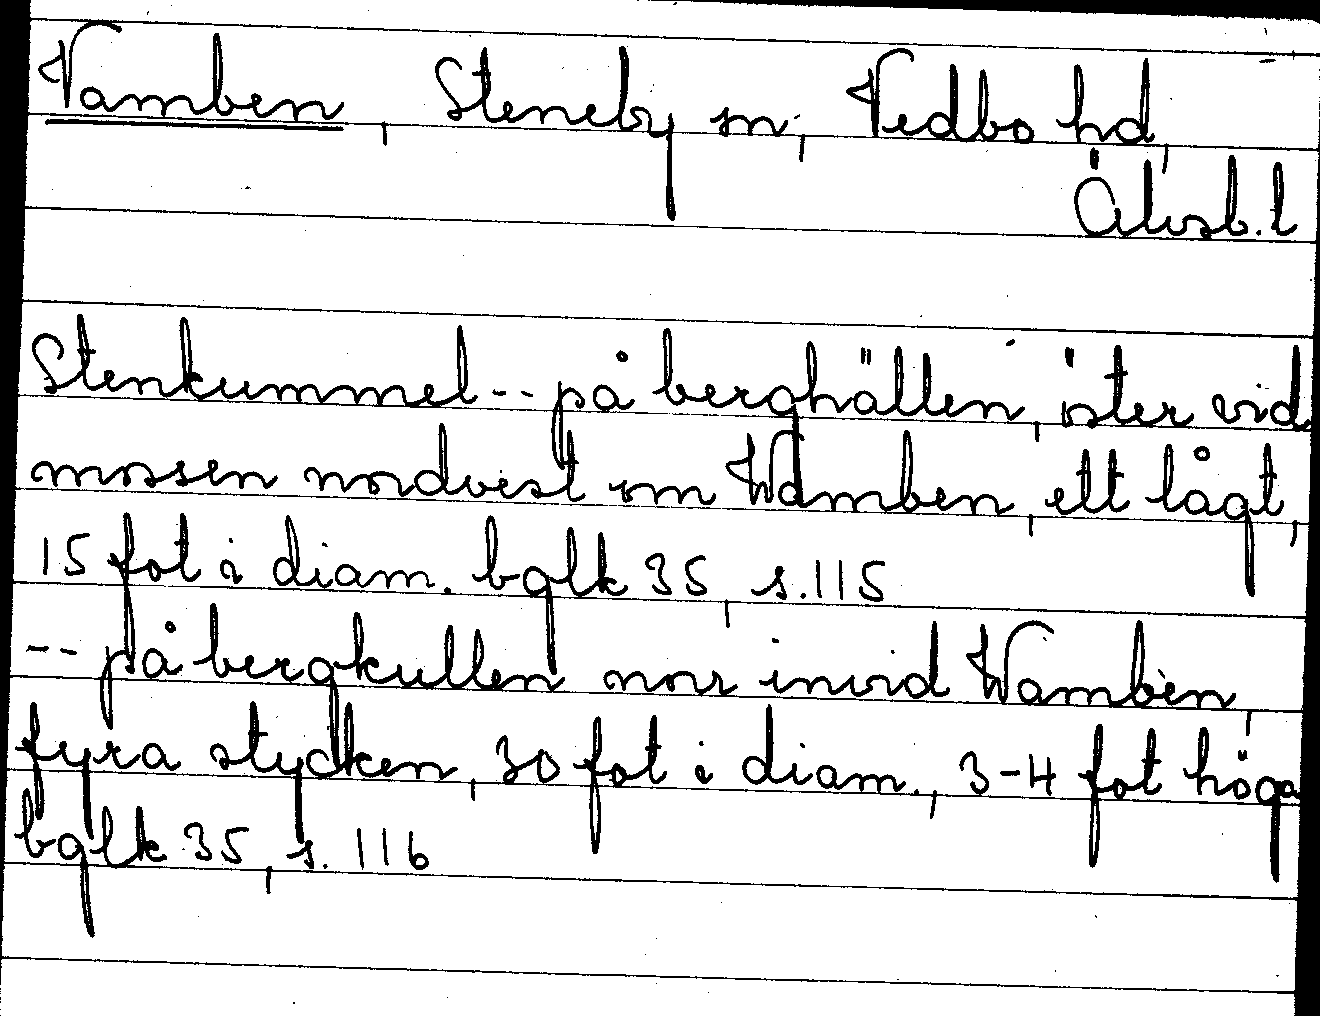 Vamben, Steneby sn, Vedbo hd,
Älvsb. l
Stenkummel -- på berghällen, öster vid
mossen nordvest om Wamben, ett lågt,
15 fot i diam. bglk 35, s. 115
-- på bergkullen norr invid Wamben,
fyra stycken, 30 fot i diam., 3-4 fot höga
bglk 35, s. 116